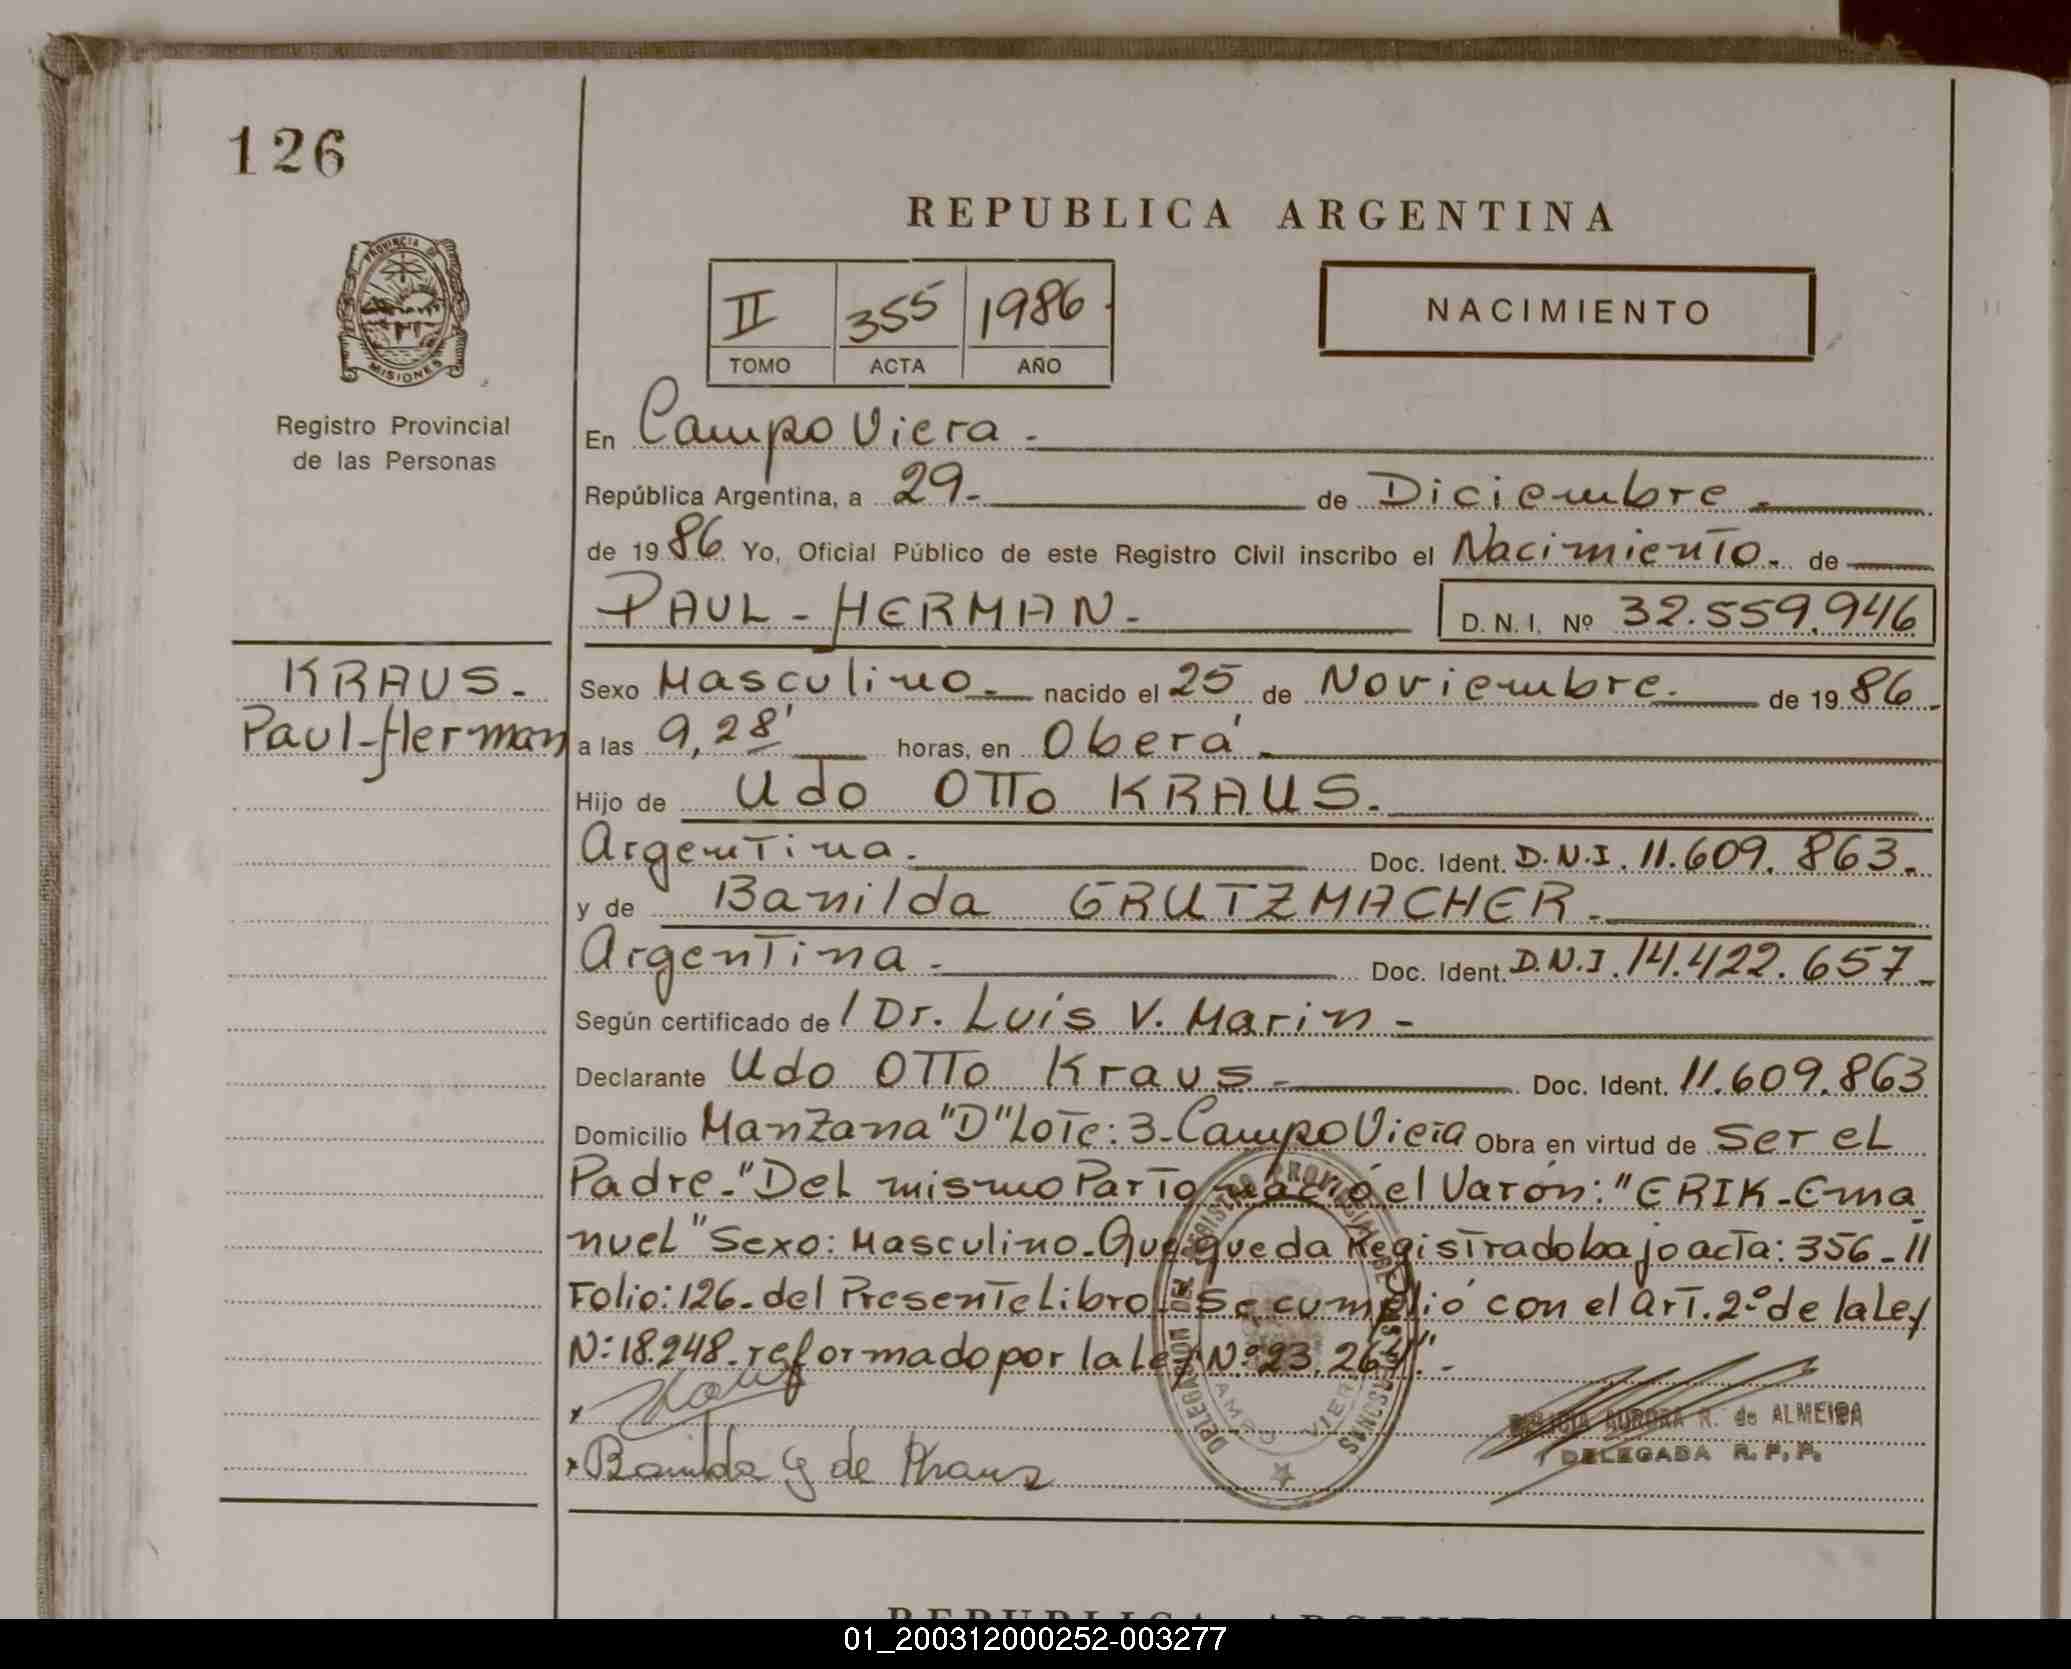 126
REPUBLICA ARGENTINA
PROVINCIA DE
MISIONES
II 355 1986.
TOMO ACTA AÑO
NACIMIENTO
Registro Provincial
de las Personas
En Campo Viera.
República Argentina, a 29. de Diciembre.
de 1986 Yo, Oficial Público de este Registro Civil inscribo el Nacimiento. de
PAUL-HERMAN. D.N.I. Nº 32.559.946
KRAUS.
Paul-Herman
Sexo Masculino. nacido el 25 de Noviembre. de 1986
a las 9,28' horas, en Oberá.
Hijo de Udo OTTO KRAUS.
Argentina. Doc. Ident. D.N.I. 11.609.863.
y de Banilda GRUTZMACHER.
Argentina. Doc. Ident. D.N.I. 14.422.657.
Según certificado de / Dr. Luís V. Marin -
Declarante Udo OTTO Kraus. Doc. Ident. 11.609.863
Domicilio Manzana "D" Lote: 3-Campo Viera Obra en virtud de ser el
Padre."Del mismo Parto nació el Varón: "ERIK-Ema
nuel" Sexo: Masculino. Que queda Registrado bajo acta: 356-II
Folio: 126. del Presente Libro. Se cumplió con el art. 2º de la Ley
N: 18.248. reformado por la Ley Nº 23.264".-
DELEGACION DEL REGISTRO PROVINCIAL DE LAS PERSONAS
CAMPO VIERA
x
x Banilda G de Kraus
AURORA R. de ALMEIDA
DELEGADA R. P. P.
REPUBLICA ARGENTINA
01_200312000252-003277